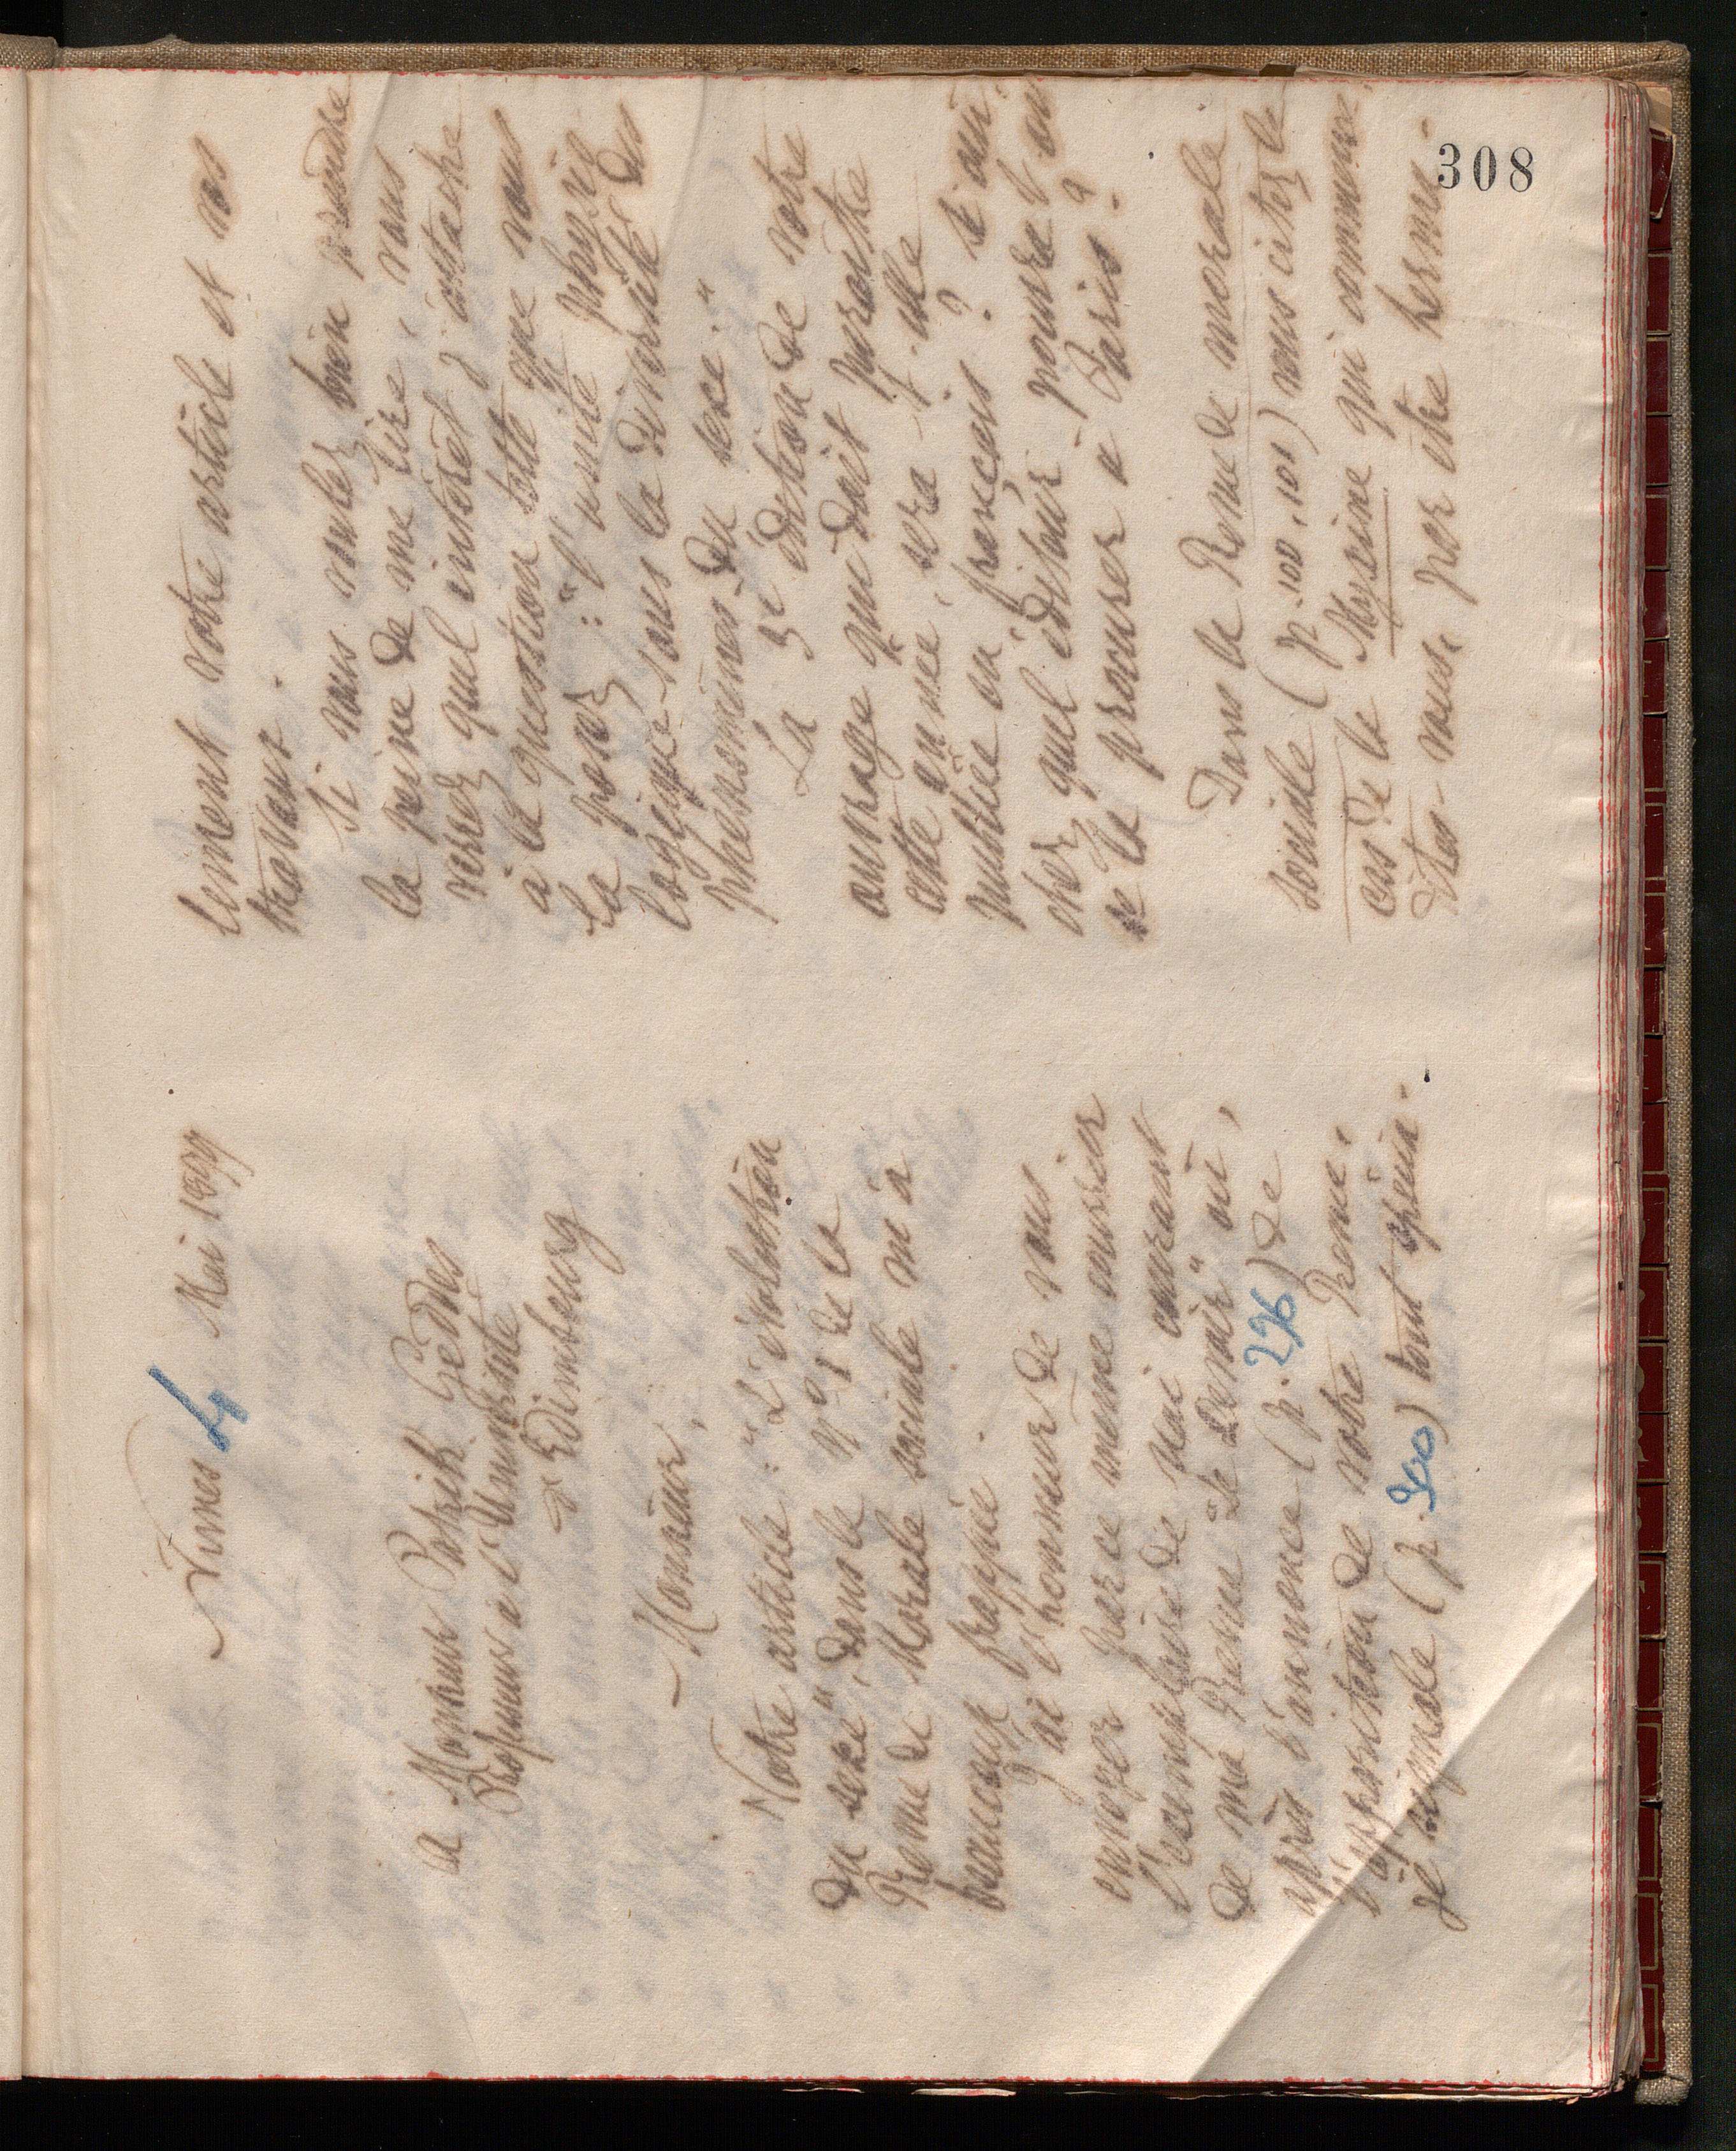 308
Nîmes 4 Mai 1899
a Monsieur Patrik Geddes
Professeur a l'Université
d'Edimbourg
Monsieur,
Votre article : "L'évolution
du sexe", dans le No 1 de la
Revue de Morale sociale m'a
beaucoup frappée.
J'ai l'honneur de vous
envoyer par ce même courrier
l'exemplaire de Mai courant
de ma Revue "Le Devoir" où,
après l'annonce (p. 296) de
l'apparition de votre Revue,
je signale (p. 300) tout spécia-
lement votre article et vos
travaux.
Si vous voulez bien prendre
la peine de me lire, vous
verrez quel intérêt j'attache
à la question telle que vous
la posez : "l'unité physio-
logique sous la diversité des
phénomènes du sexe."
La 3e édition de votre
ouvrage qui doit paraître
cette année, sera-t-elle
publiée en français ? Si oui,
chez quel éditeur pourra-t-on
se la procurer à Paris ?
Dans la Revue de morale
sociale (p. 100, 101) vous citez le
cas de la Myxine qui commence,
dites-vous, par être herma-